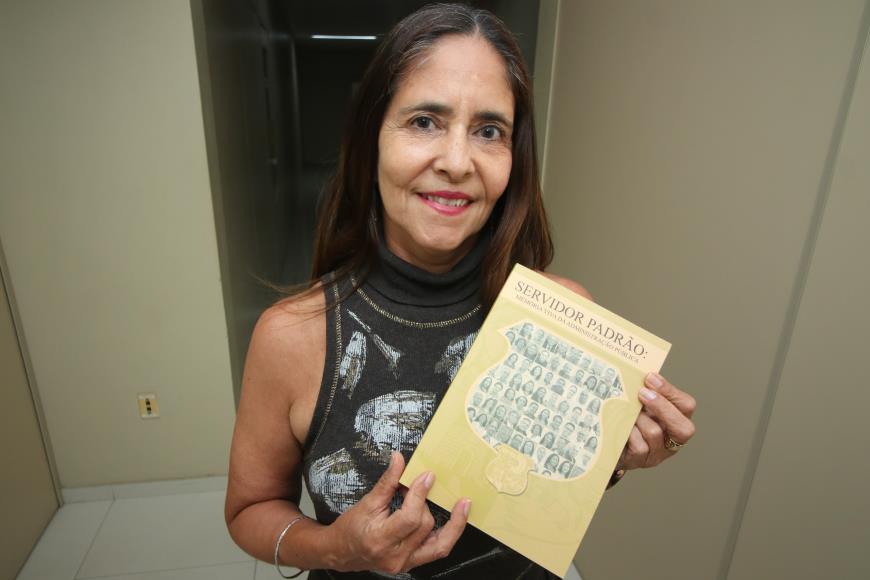 SERVIDOR PADRÃO:
MEMÓRIA VIVA DA ADMINISTRAÇÃO PÚBLICA